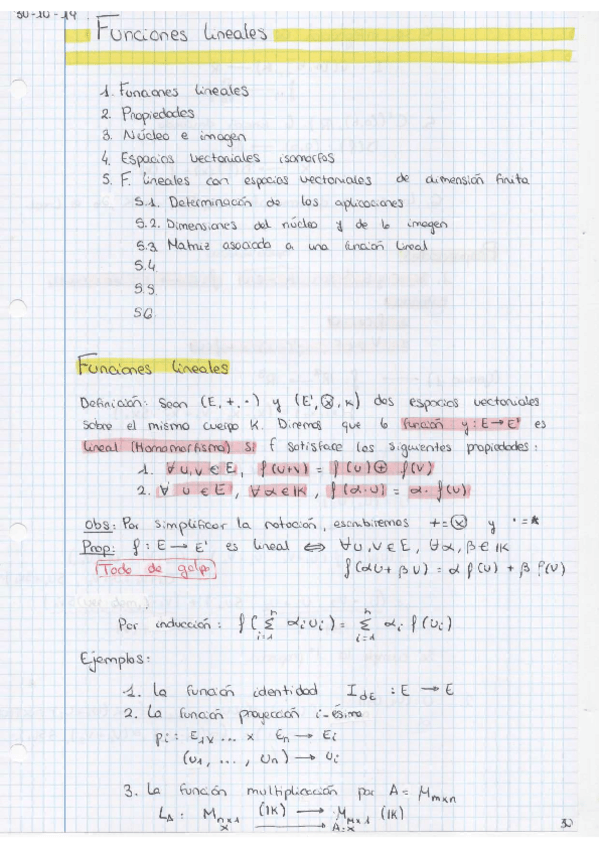 30-10-14
Funciones lineales
1. Funciones lineales
2. Propiedades
3. Núcleo e imagen
4. Espacios vectoriales isomorfos
5. F. lineales con espacios vectoriales de dimensión finita
5.1. Determinación de los aplicaciones
5.2. Dimensiones del núcleo y de lo imagen
5.3 Matriz asociada a una función lineal
5.4
5.5.
5.6.
Funciones lineales
Definición: Sean (E, +, ·) y (E', ⊗, *) dos espacios vectoriales
sobre el mismo cuerpo K. Diremos que lo función y: E → E' es
lineal (Homomorfismo) si f satisface las siguientes propiedades:
1. ∀ u,v ∈ E, f(u+v) = f(u) ⊕ f(v)
2. ∀ u ∈ E, ∀ α ∈ IK, f(α·u) = α· f(u)
Obs: Por simplificar la notación, escribiremos + = ⊗ y · = *
Prop: f: E → E' es lineal ⇔ ∀ u,v ∈ E, ∀α, β ∈ IK
(Todo de golpe) f(αu + βv) = α f(u) + β f(v)
Por inducción: f(∑ⁿᵢ₌₁ αᵢ uᵢ) = ∑ⁿᵢ₌₁ αᵢ f(uᵢ)
Ejemplos:
1. La función identidad I_dE : E → E
2. La función proyección i-ésima
pᵢ: E₁x ... x Eₙ → Eᵢ
(u₁, ..., uₙ) → uᵢ
3. La función multiplicación por A = M_mxn
L_A: M_nx1 (IK) → M_mx1 (IK)
x → A·x
30